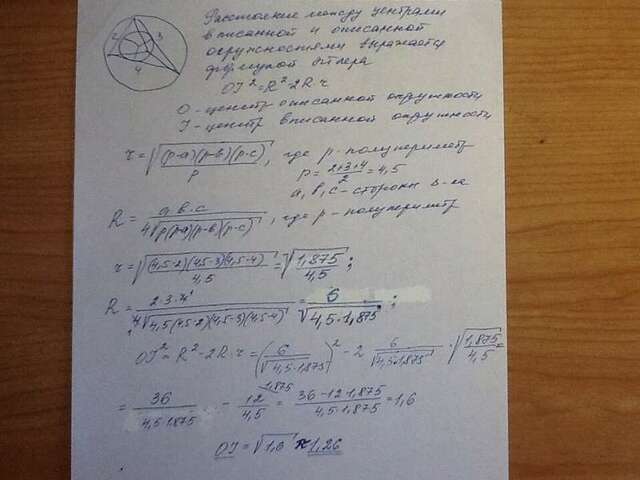 2 3
4
Расстояние между центрами
вписанной и описанной
окружностями выражается
формулой Эйлера
OI² = R² - 2R·r
O - центр описанной окружности
I - центр вписанной окружности
r = √((p-a)(p-b)(p-c)/p), где p - полупериметр
p = (2+3+4)/2 = 4,5
a, b, c - стороны Δ-ка
R = a·b·c/(4√(p(p-a)(p-b)(p-c))), где p - полупериметр
r = √((4,5-2)(4,5-3)(4,5-4)/4,5) = √(1,875/4,5);
R = 2·3·4/(4√(4,5(4,5-2)(4,5-3)(4,5-4))) = 6/√(4,5·1,875);
OI² = R² - 2R·r = (6/√(4,5·1,875))² - 2 6/√(4,5·1,875) · √(1,875/4,5) =
= 36/(4,5·1,875) - 12/4,5 = (36-12·1,875)/(4,5·1,875) = 1,6
OI = √1,6 ≈ 1,26